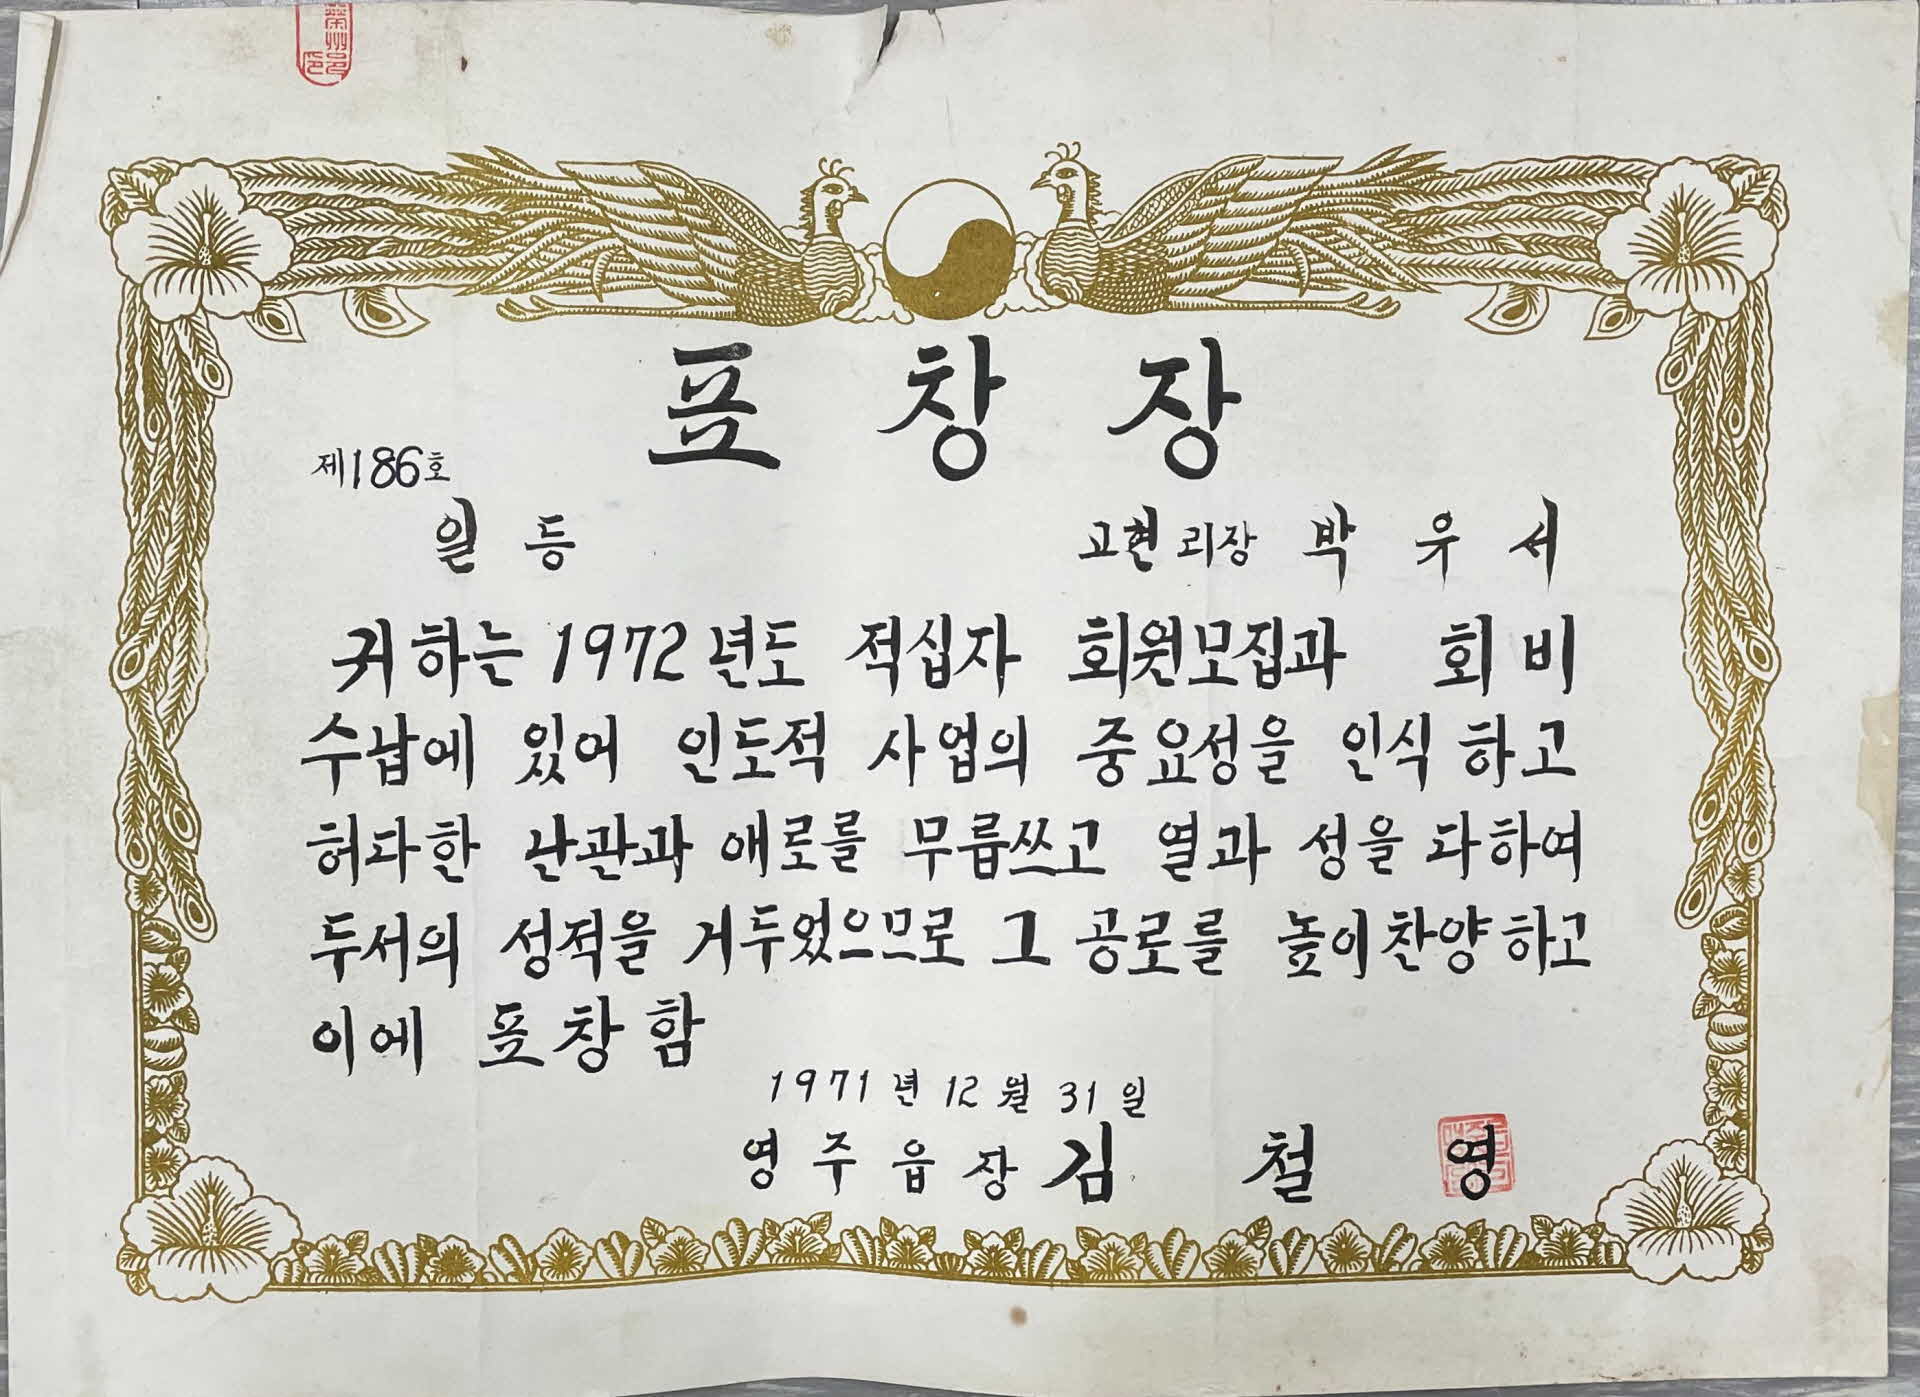 榮州邑印
표창장
제186호
일등 고현리장 박우서
귀하는 1972년도 적십자 회원모집과 회비
수납에 있어 인도적 사업의 중요성을 인식하고
허다한 난관과 애로를 무릅쓰고 열과 성을 다하여
두서의 성적을 거두었으므로 그 공로를 높이찬양하고
이에 표창함
1971년 12월 31일
영주읍장 김철영